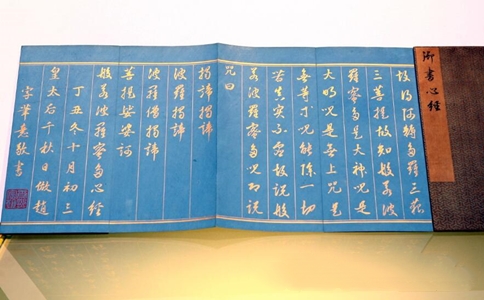 御書心經
故得阿耨多羅三藐
三菩提故知般若波
羅蜜多是大神咒是
大明咒是無上咒是
無等等咒能除一切
苦真實不虛故說般
若波羅蜜多咒即說
咒曰
揭諦揭諦
波羅揭諦
波羅僧揭諦
菩提娑婆訶
般若波羅蜜多心經
丁丑冬十月初三
皇太后千秋日倣趙
字筆意敬書